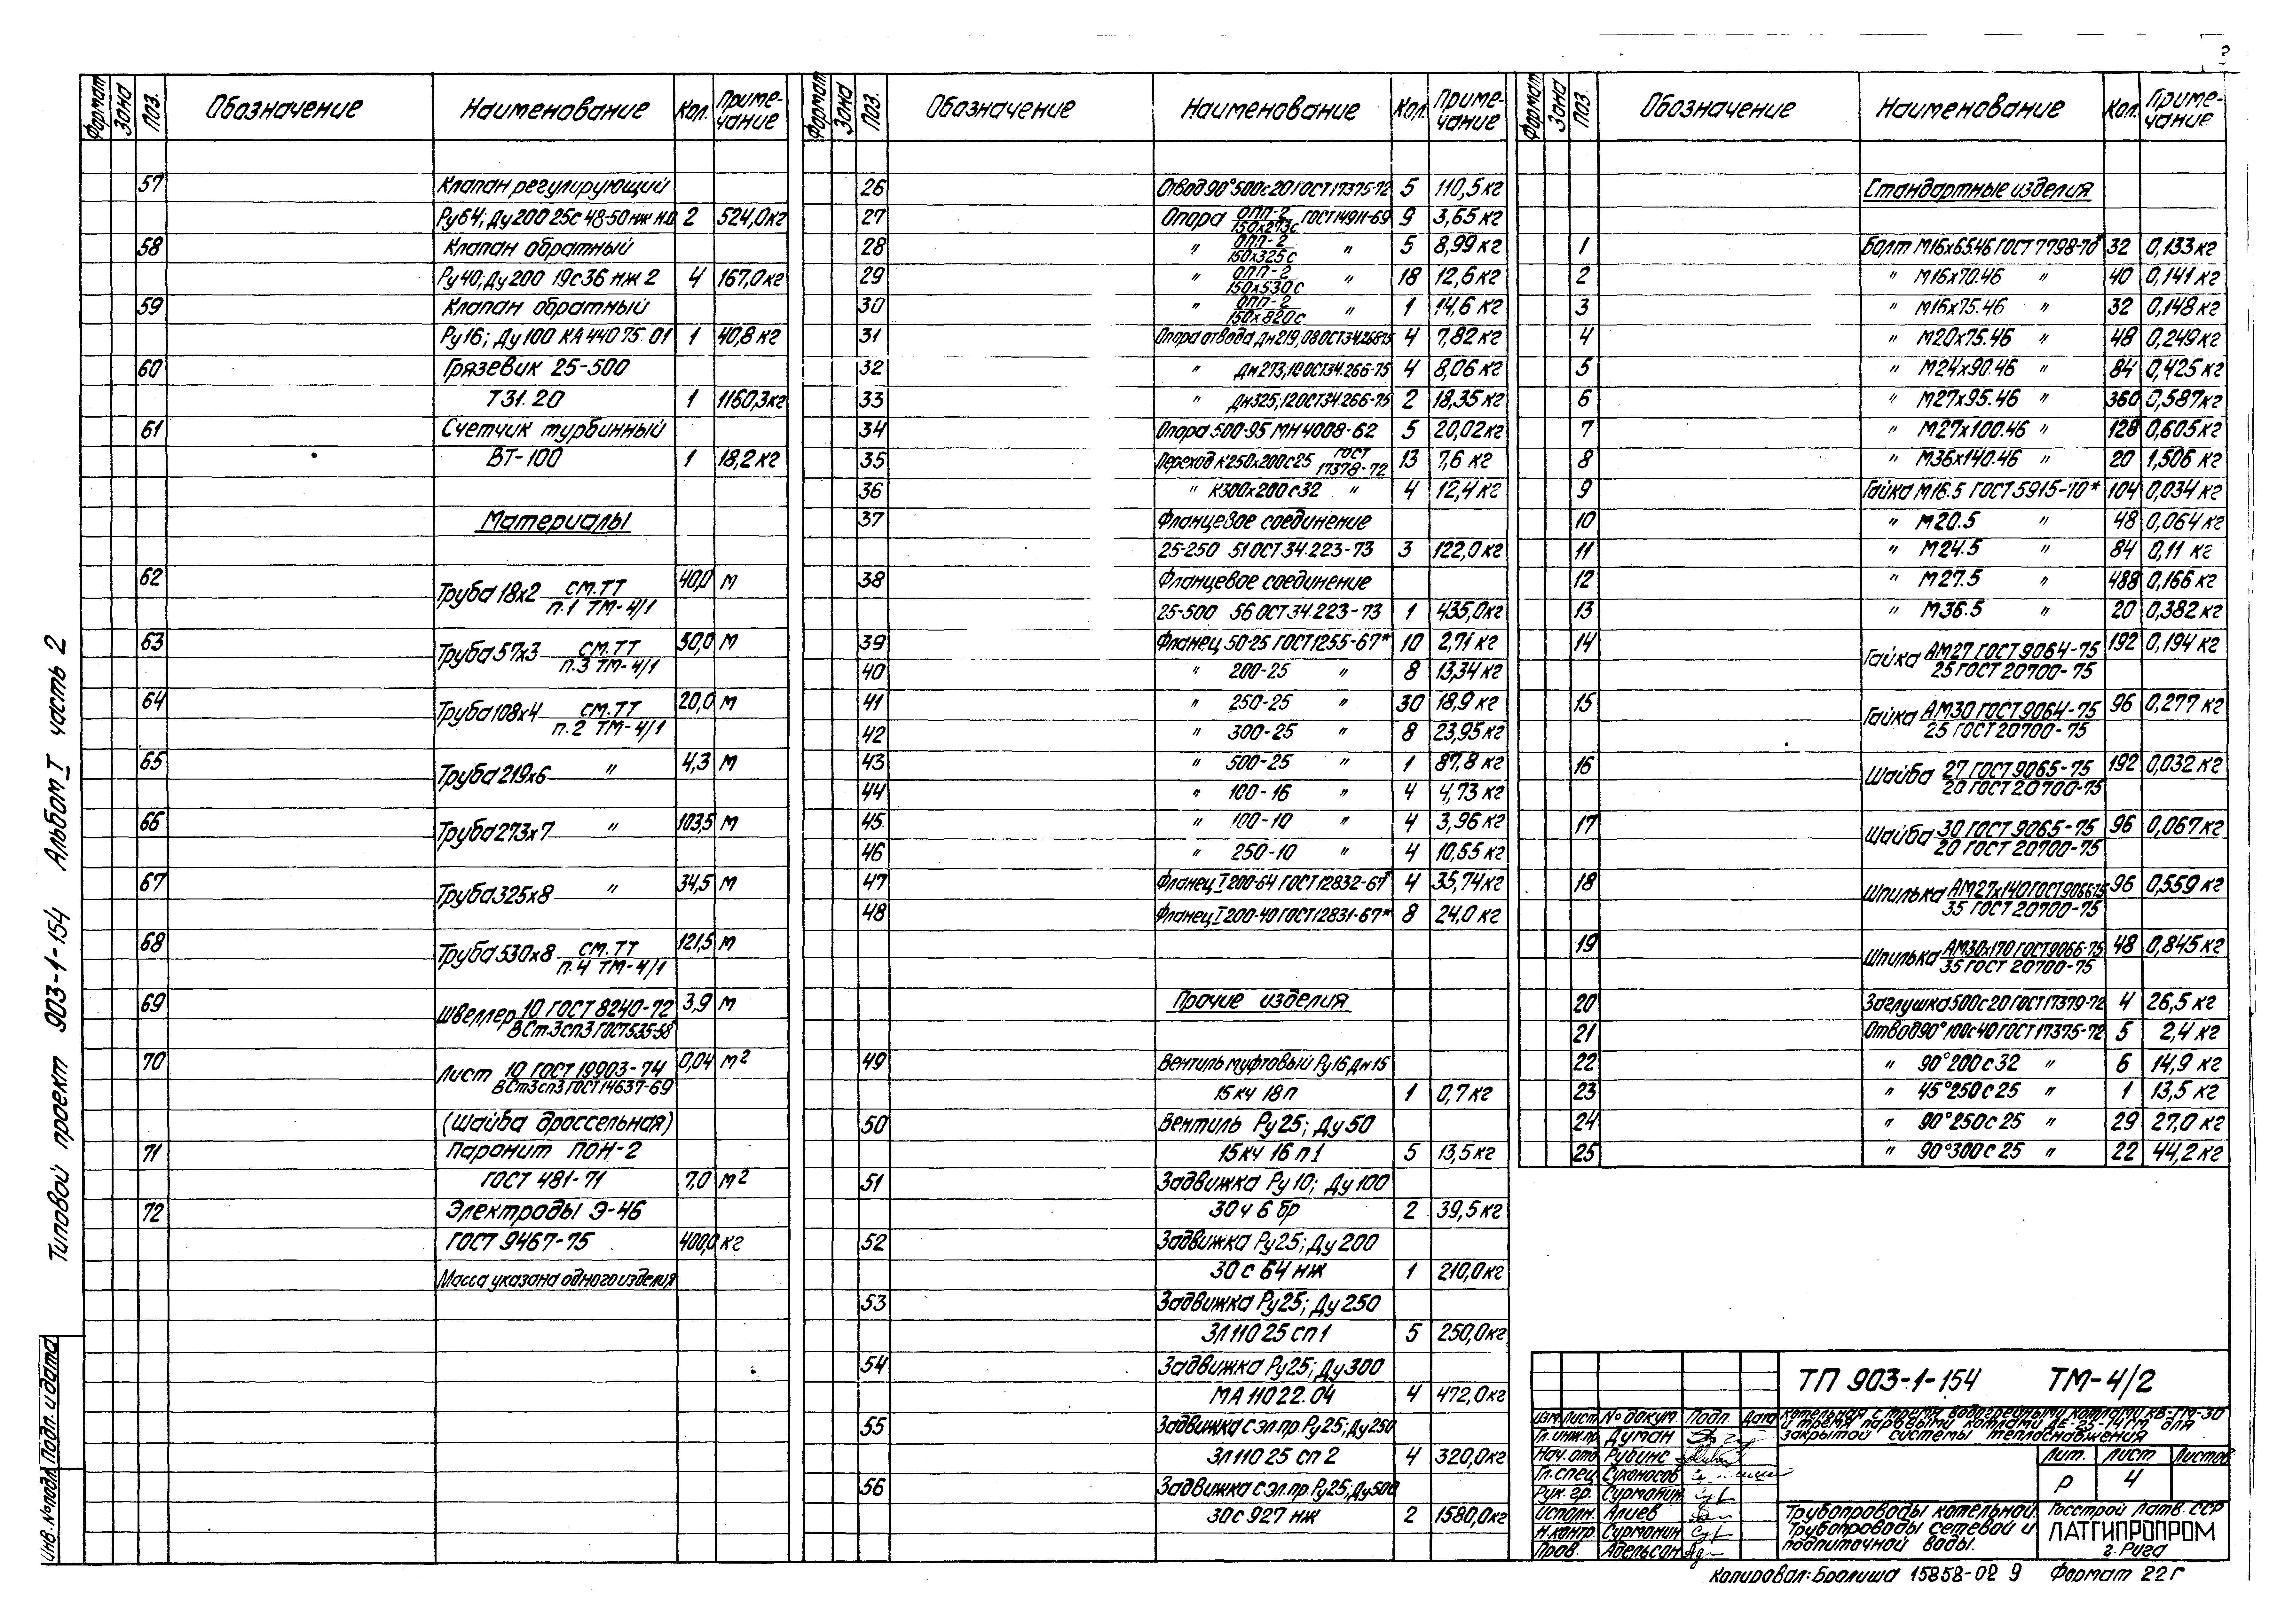 Типовой проект 903-1-154 Альбом I часть 2
Инв. № подл. Подп. и дата
Формат Зона Поз. Обозначение Наименование Кол. Примечание
57 Клапан регулирующий
Ру64; Ду200 25с 48-50 нж н.о. 2 524,0 кг
58 Клапан обратный
Ру40; Ду200 19с36 нж 2 4 167,0 кг
59 Клапан обратный
Ру16; Ду100 КА 44075.01 1 40,8 кг
60 Грязевик 25-500
Т31.20 1 1160,3 кг
61 Счетчик турбинный
ВТ-100 1 18,2 кг
Материалы
62 Труба 18х2 см.ТТ п.1 ТМ-4/1 40,0 м
63 Труба 57х3 см.ТТ п.3 ТМ-4/1 50,0 м
64 Труба 108х4 см.ТТ п.2 ТМ-4/1 20,0 м
65 Труба 219х6 " 4,3 м
66 Труба 273х7 " 103,5 м
67 Труба 325х8 " 34,5 м
68 Труба 530х8 см.ТТ п.4 ТМ-4/1 121,5 м
69 Швеллер 10 ГОСТ 8240-72 3,9 м
ВСт.3сп3 ГОСТ 535-58
70 Лист 10 ГОСТ 19903-74 0,04 м²
ВСт3сп3 ГОСТ 14637-69
(Шайба дроссельная)
71 Паронит ПОН-2
ГОСТ 481-71 7,0 м²
72 Электроды Э-46
ГОСТ 9467-75 400,0 кг
Масса указана одного изделия
Формат Зона Поз. Обозначение Наименование Кол. Примечание
26 Отвод 90°500с20 ГОСТ 17375-72 5 110,5 кг
27 Опора ОПП-2 150х273с ГОСТ 14911-69 9 3,65 кг
28 " ОПП-2 150х325с " 5 8,99 кг
29 " ОПП-2 150х530с " 18 12,6 кг
30 " ОПП-2 150х820с " 1 14,6 кг
31 Опора отвода Дн219,08 ОСТ34.266-75 4 7,82 кг
32 " Дн273,10 ОСТ34.266-75 4 8,06 кг
33 " Дн325,12 ОСТ34.266-75 2 18,35 кг
34 Опора 500-95 МН 4008-62 5 20,02 кг
35 Переход К250х200с25 ГОСТ 17378-72 13 7,6 кг
36 " К300х200с32 " 4 12,4 кг
37 Фланцевое соединение
25-250 51 ОСТ 34.223-73 3 122,0 кг
38 Фланцевое соединение
25-500 56 ОСТ 34.223-73 1 435,0 кг
39 Фланец 50-25 ГОСТ 1255-67* 10 2,71 кг
40 " 200-25 " 8 13,34 кг
41 " 250-25 " 30 18,9 кг
42 " 300-25 " 8 23,95 кг
43 " 500-25 " 1 87,8 кг
44 " 100-16 " 4 4,73 кг
45 " 100-10 " 4 3,96 кг
46 " 250-10 " 4 10,55 кг
47 Фланец I 200-64 ГОСТ 12832-67* 4 35,74 кг
48 Фланец I 200-40 ГОСТ 12831-67* 8 24,0 кг
Прочие изделия
49 Вентиль муфтовый Ру16 Дн15
15 кч 18 п 1 0,7 кг
50 Вентиль Ру25; Ду50
15 кч 16 п1 5 13,5 кг
51 Задвижка Ру10; Ду100
30 ч 6 бр 2 39,5 кг
52 Задвижка Ру25; Ду200
30 с 64 нж 1 210,0 кг
53 Задвижка Ру25; Ду250
ЗЛ 11025 сп 1 5 250,0 кг
54 Задвижка Ру25; Ду300
МА 11022.04 4 472,0 кг
55 Задвижка с эл.пр. Ру25; Ду250
ЗЛ 11025 сп 2 4 320,0 кг
56 Задвижка с эл.пр. Ру25; Ду500
30с 927 нж 2 1580,0 кг
Формат Зона Поз. Обозначение Наименование Кол. Примечание
Стандартные изделия
1 Болт М16х65.46 ГОСТ 7798-70* 32 0,133 кг
2 " М16х70.46 " 40 0,141 кг
3 " М16х75.46 " 32 0,148 кг
4 " М20х75.46 " 48 0,249 кг
5 " М24х90.46 " 84 0,425 кг
6 " М27х95.46 " 360 0,587 кг
7 " М27х100.46 " 128 0,605 кг
8 " М36х140.46 " 20 1,506 кг
9 Гайка М16.5 ГОСТ 5915-70* 104 0,034 кг
10 " М20.5 " 48 0,064 кг
11 " М24.5 " 84 0,11 кг
12 " М27.5 " 488 0,166 кг
13 " М36.5 " 20 0,382 кг
14 Гайка АМ27 ГОСТ 9064-75 192 0,194 кг
25 ГОСТ 20700-75
15 Гайка АМ30 ГОСТ 9064-75 96 0,277 кг
25 ГОСТ 20700-75
16 Шайба 27 ГОСТ 9065-75 192 0,032 кг
20 ГОСТ 20700-75
17 Шайба 30 ГОСТ 9065-75 96 0,067 кг
20 ГОСТ 20700-75
18 Шпилька АМ27х140 ГОСТ 9066-75 96 0,559 кг
35 ГОСТ 20700-75
19 Шпилька АМ30х170 ГОСТ 9066-75 48 0,845 кг
35 ГОСТ 20700-75
20 Заглушка 500с20 ГОСТ 17379-72 4 26,5 кг
21 Отвод 90° 100с40 ГОСТ 17375-72 5 2,4 кг
22 " 90°200с32 " 6 14,9 кг
23 " 45°250с25 " 1 13,5 кг
24 " 90°250с25 " 29 27,0 кг
25 " 90°300с25 " 22 44,2 кг
ТП 903-1-154 ТМ-4/2
Котельная с тремя водогрейными котлами КВ-ГМ-30
и тремя паровыми котлами ДЕ-25-14ГМ для
закрытой системы теплоснабжения
Изм. Лист № докум. Подп. Дата
Гл. инж. пр. Думан
Нач. отд. Рубинс
Гл. спец. Сухоносов
Рук. гр. Сурманин
Исполн. Алиев
Н. контр. Сурманин
Пров. Адельсон
Лит. Лист Листов
Р 4
Трубопроводы котельной.
Трубопроводы сетевой и
подпиточной воды.
Госстрой Латв. ССР
ЛАТГИПРОПРОМ
г. Рига
Копировал: Бролиша 15858-02 9 Формат 22Г